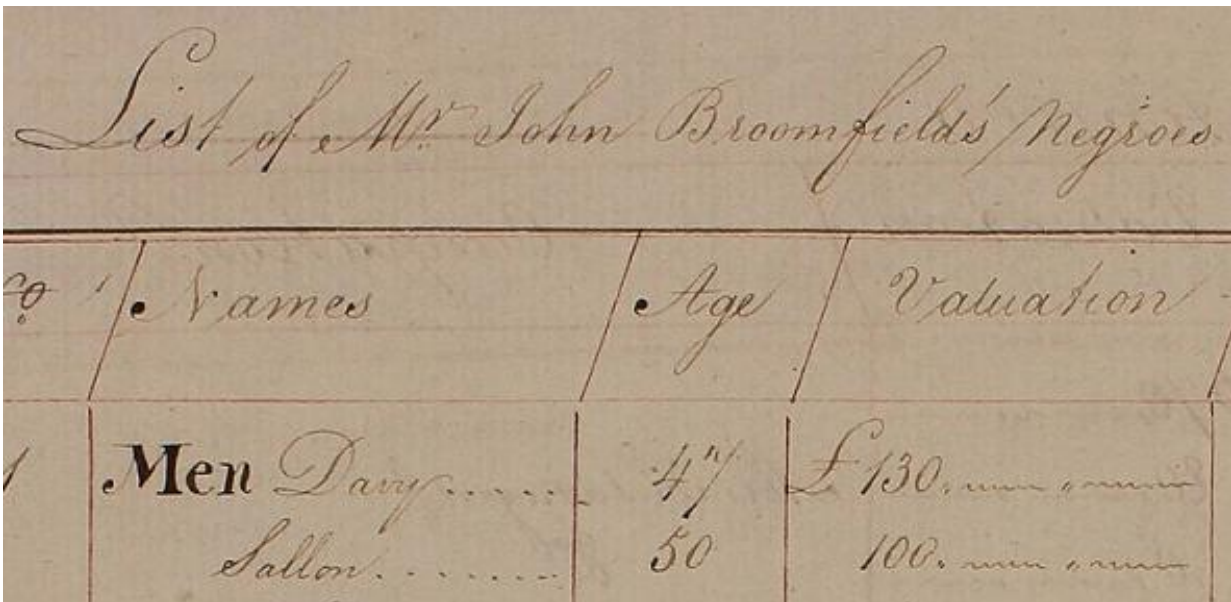 List of Mr. John Broomfield's Negroes
No. Names Age Valuation
1 Men Davy 47 £ 130.
Sallon 50 100.